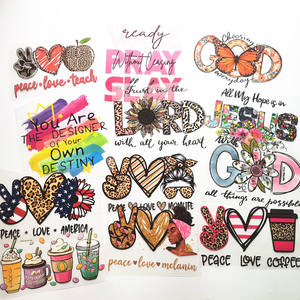 peace • love • teach
ready
Without Ceasing
PRAY
SLAY
Choosing
GOD
everyday
You Are
THE DESIGNER
of Your
Own
DESTINY
Trust in the
LORD
with all your heart
All My Hope is in
JESUS
With
GOD
all things are possible
PEACE • LOVE • AMERICA
PEACE • LOVE • MOMLIFE
peace • love • melanin
PEACE LOVE COFFEE